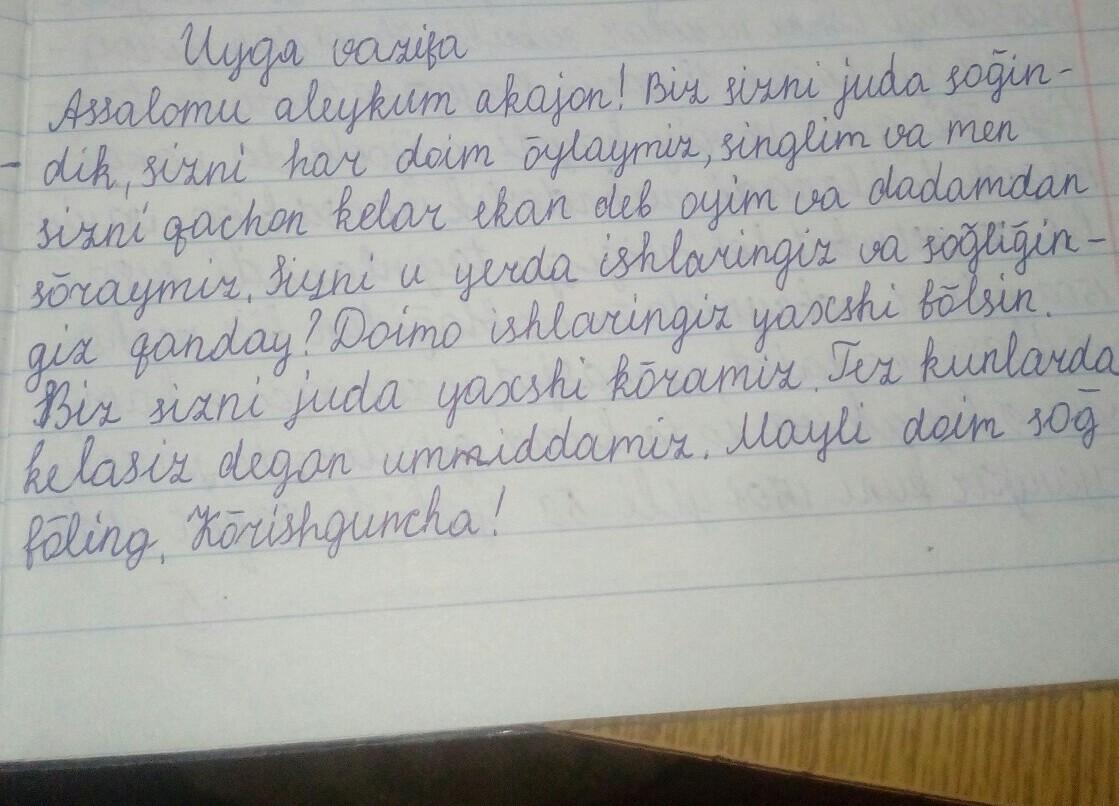 Uyga vazifa
Assalomu aleykum akajon! Biz sizni juda soḡin-
- dik, sizni har doim ōylaymiz, singlim va men
sizni qachon kelar ekan deb oyim va dadamdan
sōraymiz. Sizni u yerda ishlaringiz va soḡliḡin-
giz qanday? Doimo ishlaringiz yaxshi bōlsin.
Biz sizni juda yaxshi kōramiz. Tez kunlarda
kelasiz degan ummiddamiz. Mayli doim soḡ
bōling, Kōrishguncha!